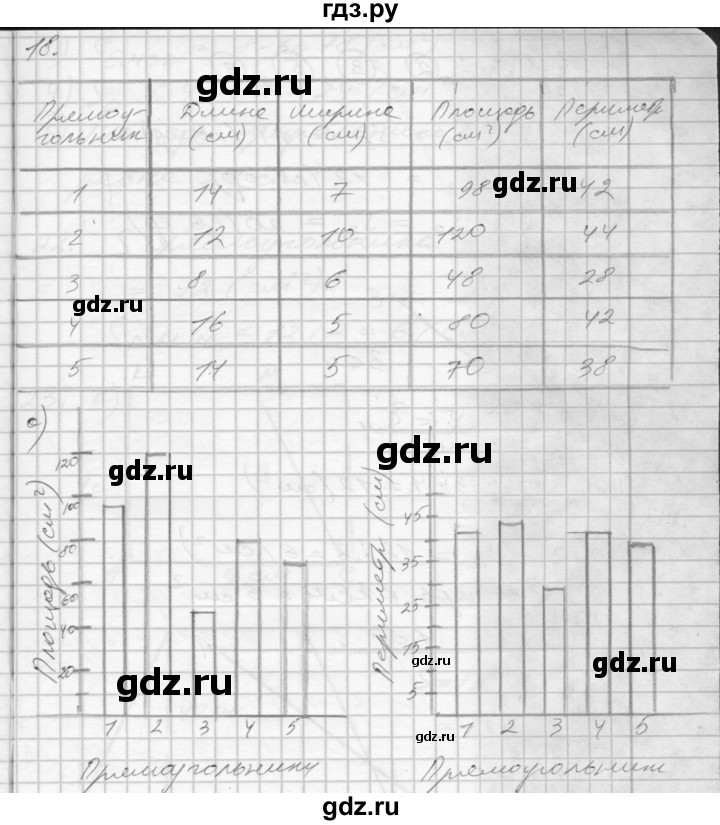 гдз.ру
18.
Прямоу-
гольник
Длина
(см)
Ширина
(см)
Площадь
(см²)
Периметр
(см)
1 14 7 98 42
2 12 10 120 44
3 8 6 48 28
4 16 5 80 42
5 14 5 70 38
gdz.ru
gdz.ru
gdz.ru
а)
Площадь (см²)
120
100
80
60
40
20
1 2 3 4 5
Прямоугольники
Периметр (см)
45
35
25
15
5
1 2 3 4 5
Прямоугольники
gdz.ru
gdz.ru
gdz.ru
gdz.ru
gdz.ru
gdz.ru
gdz.ru